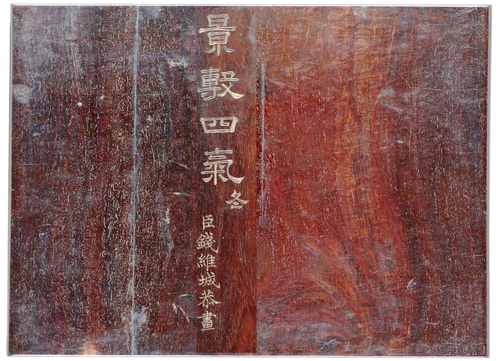 景敷四氣 冬
臣錢維城恭畫